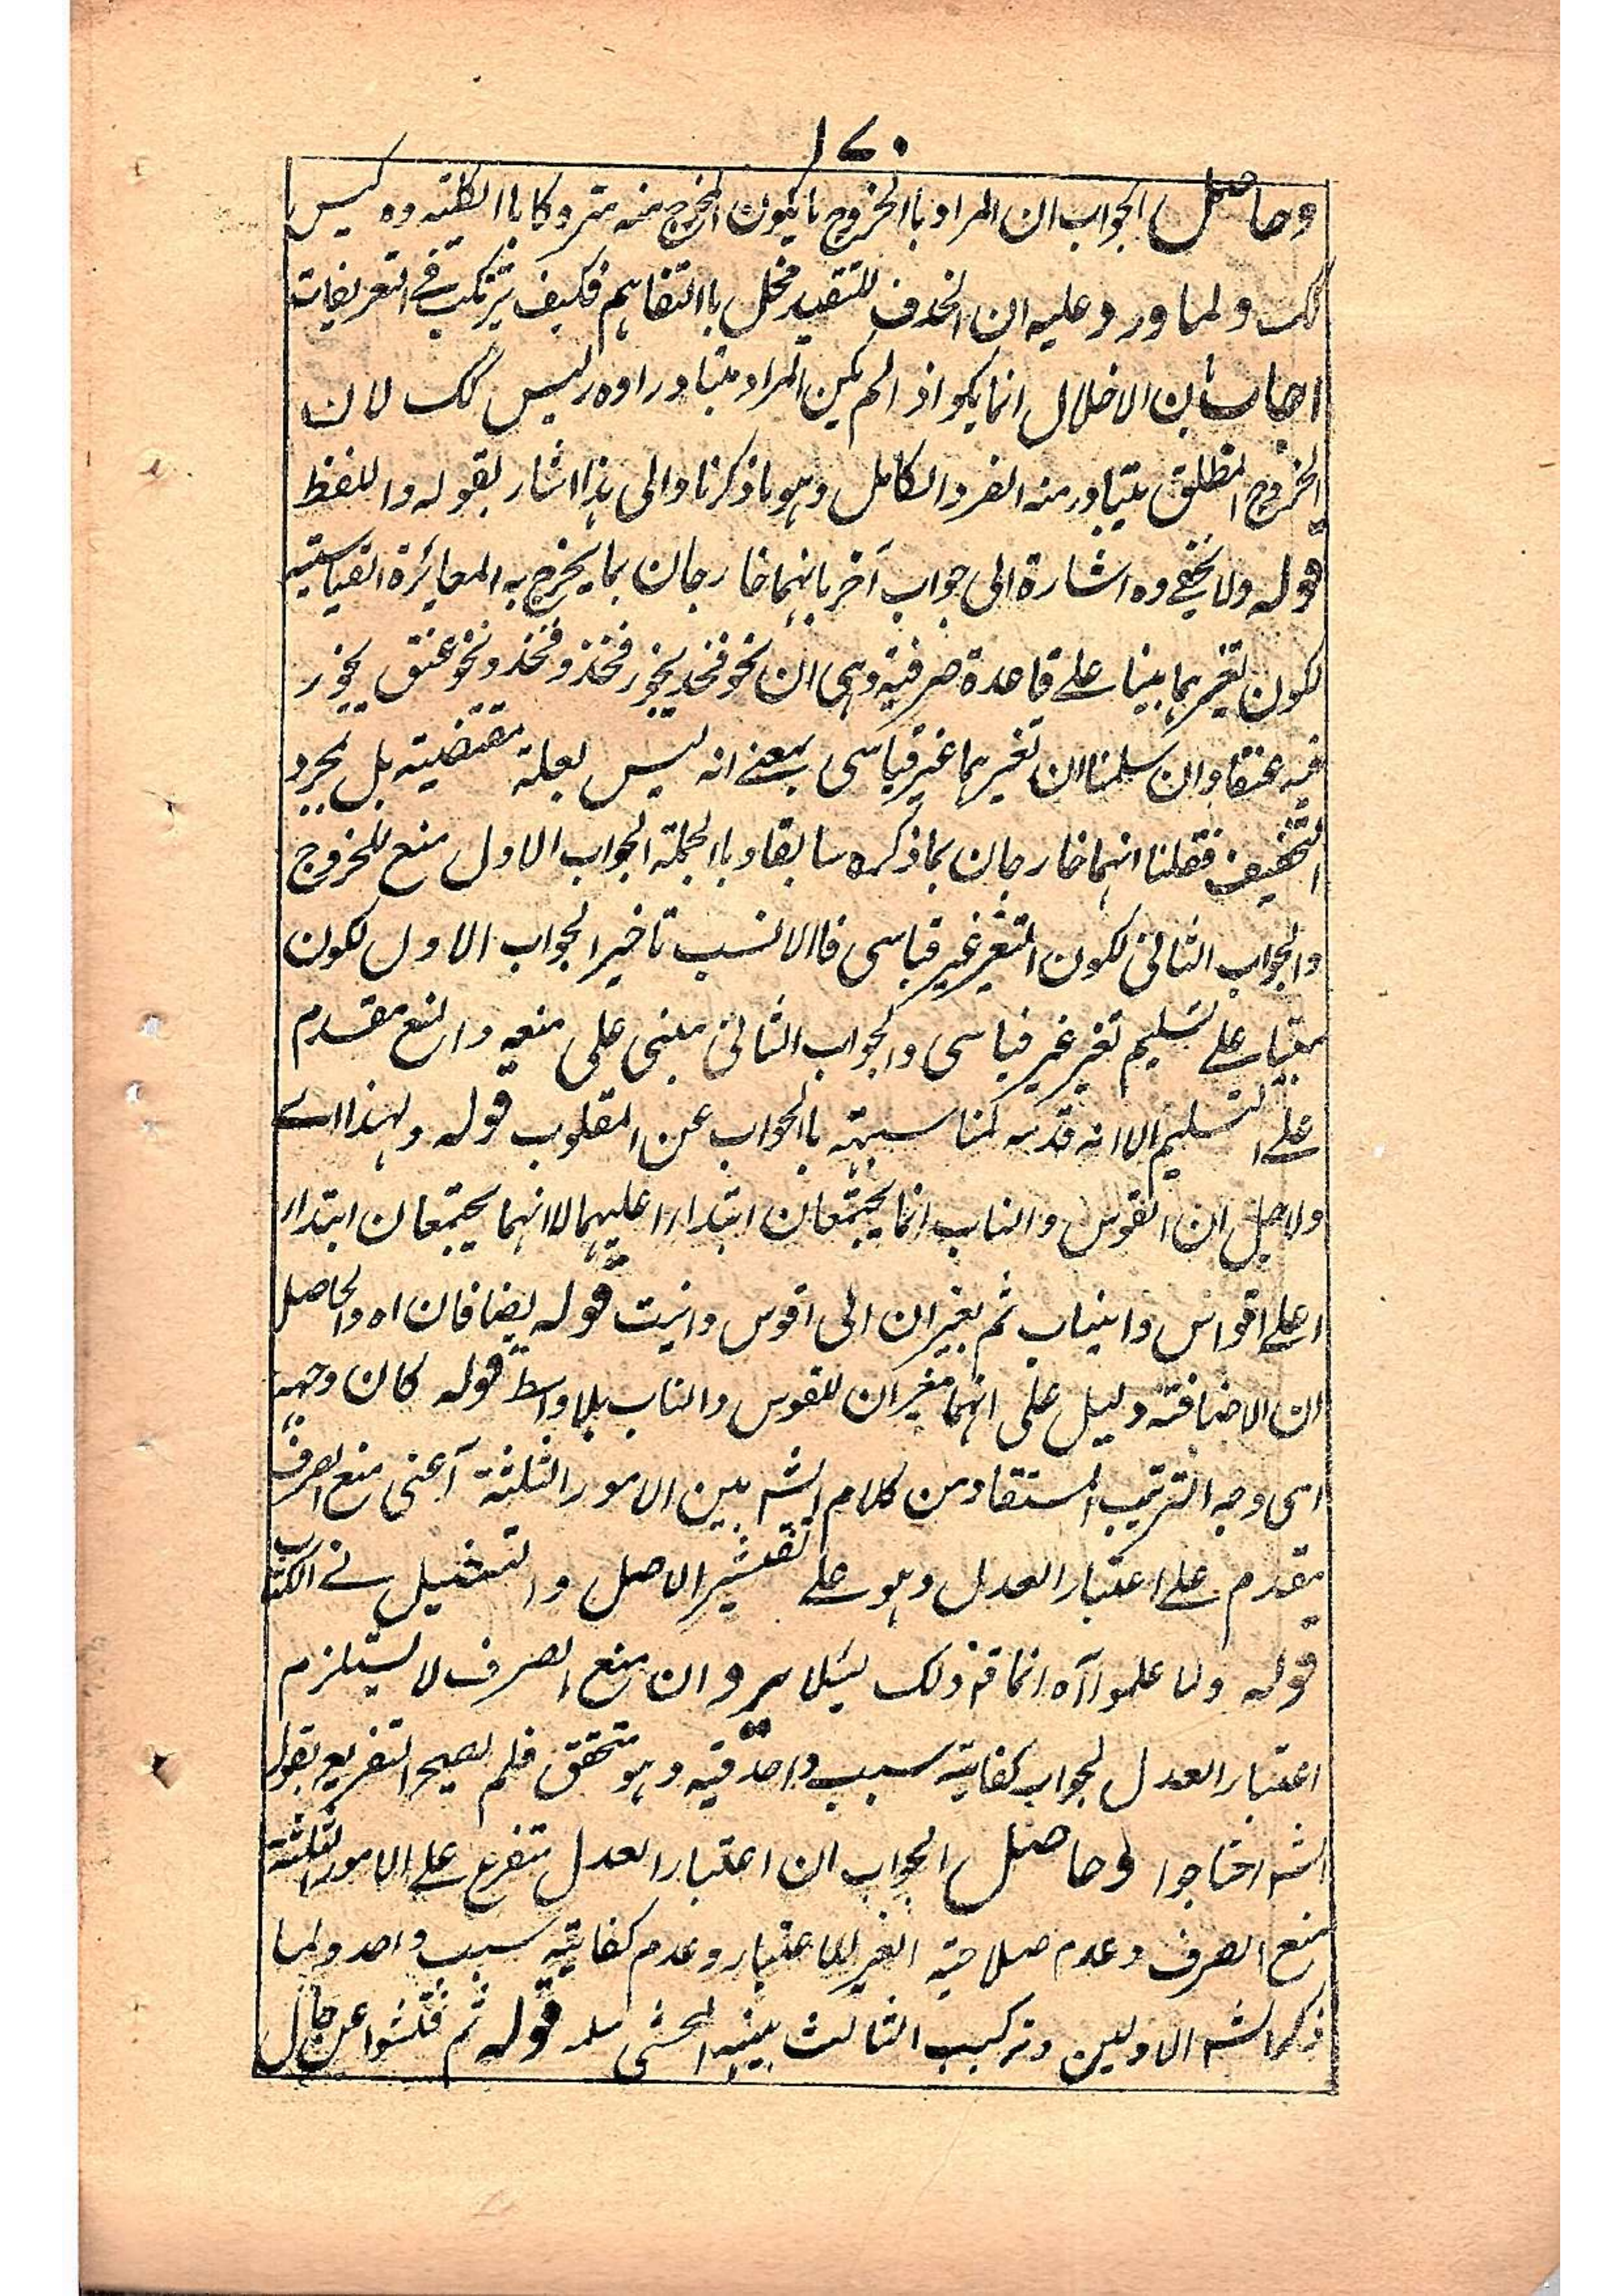 ۱۷۰
وحاصل الجواب ان المراد باالخروج ما يكون المخرج منه متروكا باالكليته وه ليس
كك ولما ورد عليه ان الحذف للتقيد مخل باالتفاهم فكيف يرتكب فى التعريفات
اجاب بان الاخلال انما يكو اذ الم يكن المراد متبادرا وه رليس كك لان
الخروج المطلق يتبادر منه الفرد الكامل وهو ما ذكرنا والى هذا اشار بقوله واللفظ
قوله ولا يخفى وه اشارة الى جواب آخر بانهما خارجان بما يخرج به المغائرة القياسيته
لكون تغيرهما مبينا على قاعدة صرفية وهى ان نحو فخذ يجوز فخذ وفخذ ونحو عنق يجوز
فيه عنقا وان سلمنا ان تغيرهما غير قياسى بمعنى انه ليس لعلته مقتضيته بل لمجرد
التخفيف فقلنا انهما خارجان بما ذكره سابقا وباالجملته الجواب الاول منع للخروج
والجواب الثانى لكون التغير غير قياسى فاالانسب تاخير الجواب الاول لكون
مبنيا على تسليم تغير غير قياسى والجواب الثانى مبنى على منعه والمنع مقدم
على التسليم الا انه قدمه لمناسبته باالجواب عن المقلوب قوله ولهذا اے
ولاجل ان القوس والناب انما يجتمعان ابتداءا عليهما لا انهما يجتمعان ابتداء
اعلى اقواس وانياب ثم يغيران الى اقوس وانيب قوله يضافان اه والحاصل
ان الاضافته دليل على انهما مغيران للقوس والناب بلا واسط قوله كان وجهه
اى وجه الترتيب المستفاد من كلام الشه بين الامور الثلثة آعنى منع الصرف
يقدم على اعتبار العدل وهو على تفتيش الاصل والتمثيل فى الكتاب
قوله ولما علموا آه انما قه ذلك ليئلا يرد ان منع الصرف لا يستلزم
اعتبار العدل لجواب كفايته سبب واحد فيه وهو متحقق فلم يصح التفريع بقوله
الشه احتاجوا وحاصل الجواب ان اعتبار العدل متفرع على الامور الثلثة
منع الصرف وعدم صلاحيته الغير للاعتبار وعدم كفايته سبب واحد ولما
ذكر الشه الاولين وتركيب الثالث بينه المحشى سلمه قوله ثم فتشوا عن حال